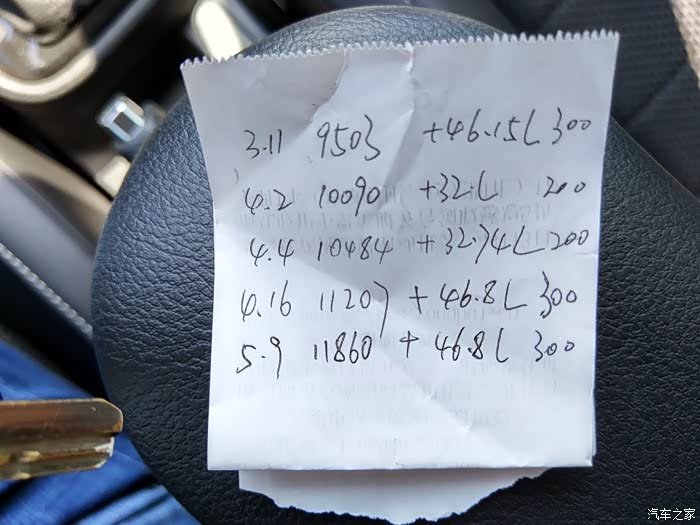 3.11 9503 +46.15L 300
4.2 10090 +32.L 200
4.4 10484 +32.74L 200
4.16 11207 +46.8L 300
5.9 11860 +46.8L 300
汽车之家